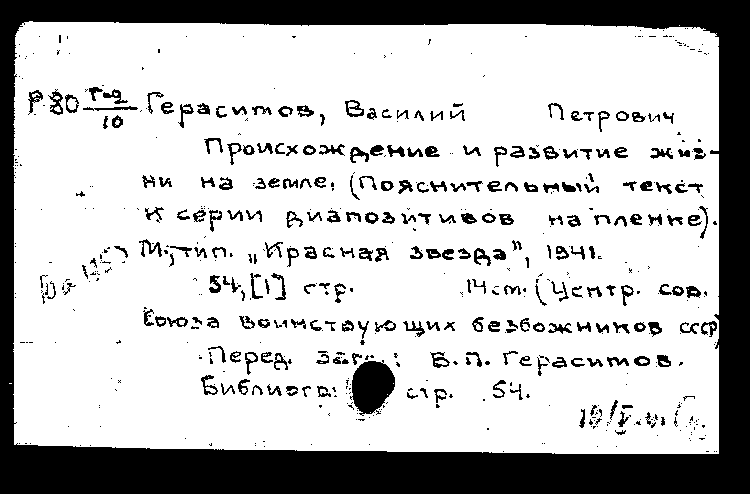 Р80 Г-2/10 Герасимов, Василий Петрович
Происхождение и развитие жиз-
ни на земле. (Пояснительный текст
к серии диапозитивов на пленке).
М., тип. „Красная звезда", 1941.
54, [1] стр. 14 см. (Центр. сов.
Союза воинствующих безбожников СССР)
Перед. загл.: В.П. Герасимов.
Библиогр: стр. 54.